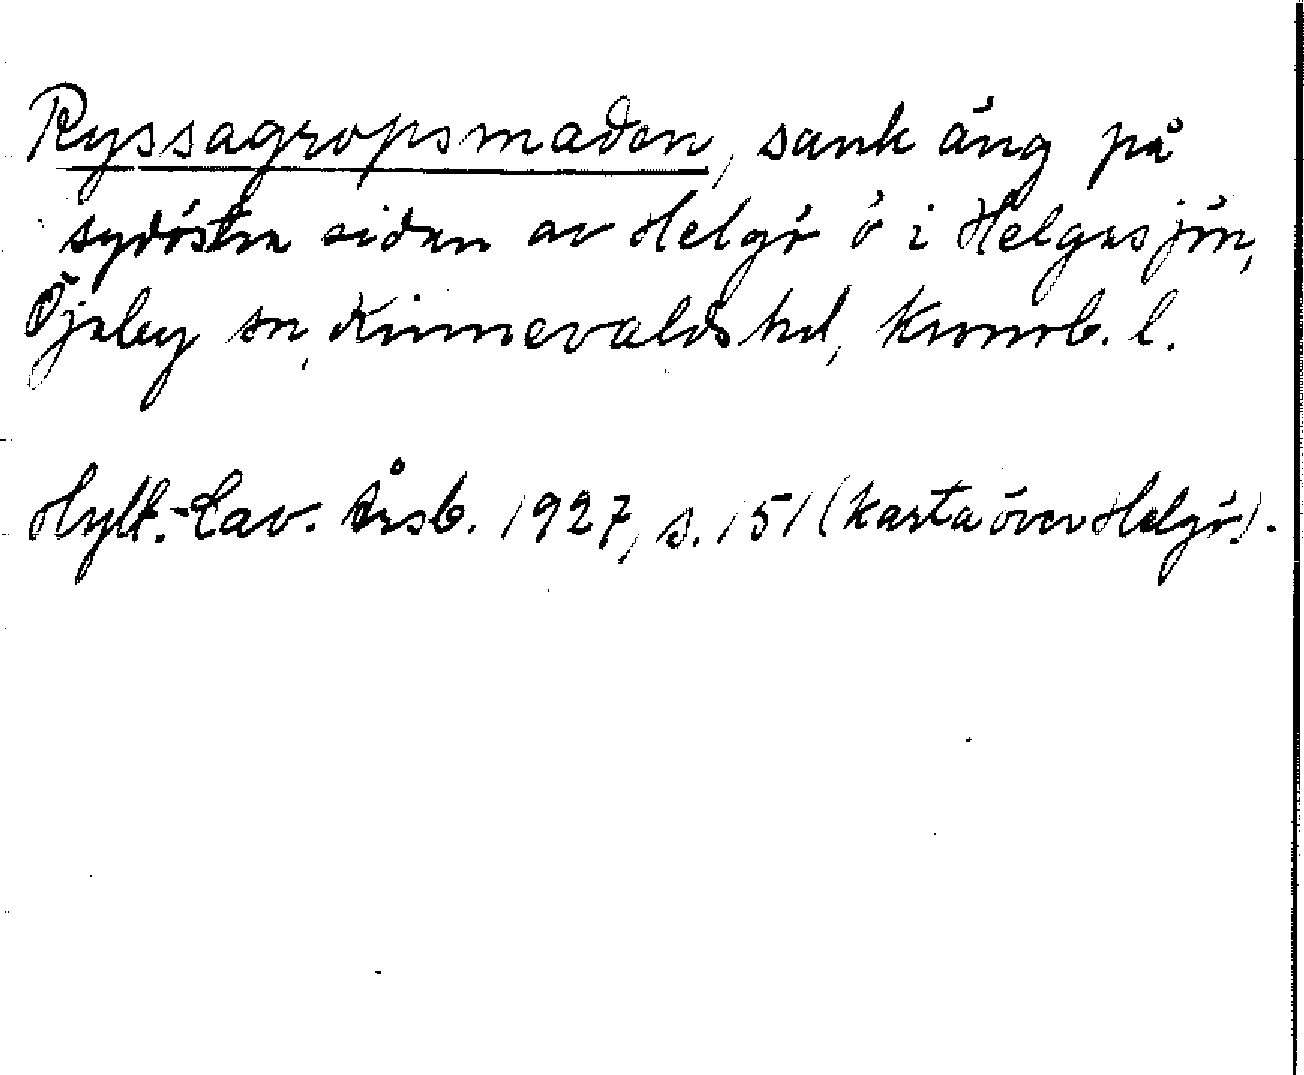 Ryssagropsmaden, sank äng på
sydöstra sidan av Helgö ö i Helgasjön,
Öjaby sn, Kinnevalds hd, Kronob. l.
Hylt.-Cav. Årsb. 1927, s. 151 (karta över Helgö).